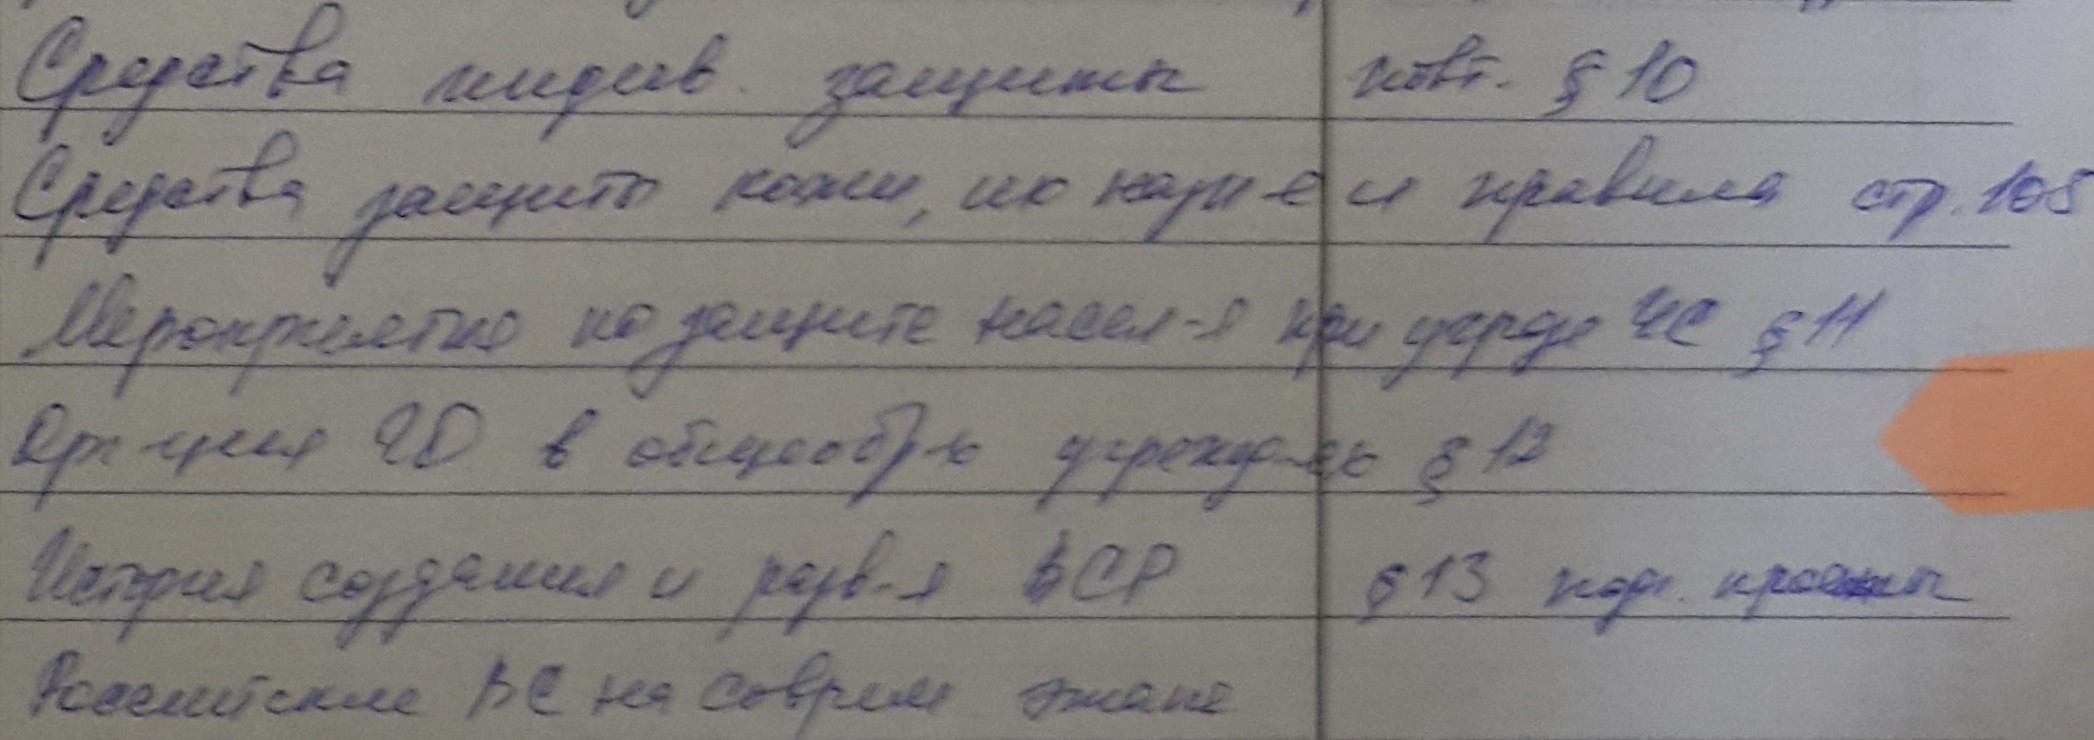 Средства индив. защиты повт. § 10
Средства защиты кожи, их назн-е и правила стр. 105
Мероприятия по защите насел-я при угрозе ЧС § 11
Орг-ция ГО в общеобр-х учрежд-ях § 12
История создания и разв-я ВСР § 13 подг. проекты
Российские ВС на соврем этапе